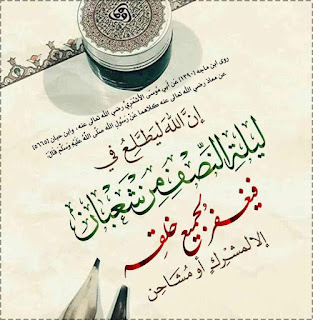 روى ابن ماجه (١٣٩٠) عن أبي موسى الأشعري رضي الله تعالى عنه، وابن حبان (٥٦٦٥)
عن معاذ رضي الله تعالى عنه كلاهما عن رسول الله صلى الله عليه وسلم قال:
إِنَّ اللهَ لَيَطَّلِعُ فِي
لَيْلَةِ النِّصْفِ مِنْ شَعْبَانَ
فَيَغْفِرُ لِجَمِيعِ خَلْقِهِ
إِلَّا لِمُشْرِكٍ أَوْ مُشَاحِنٍ